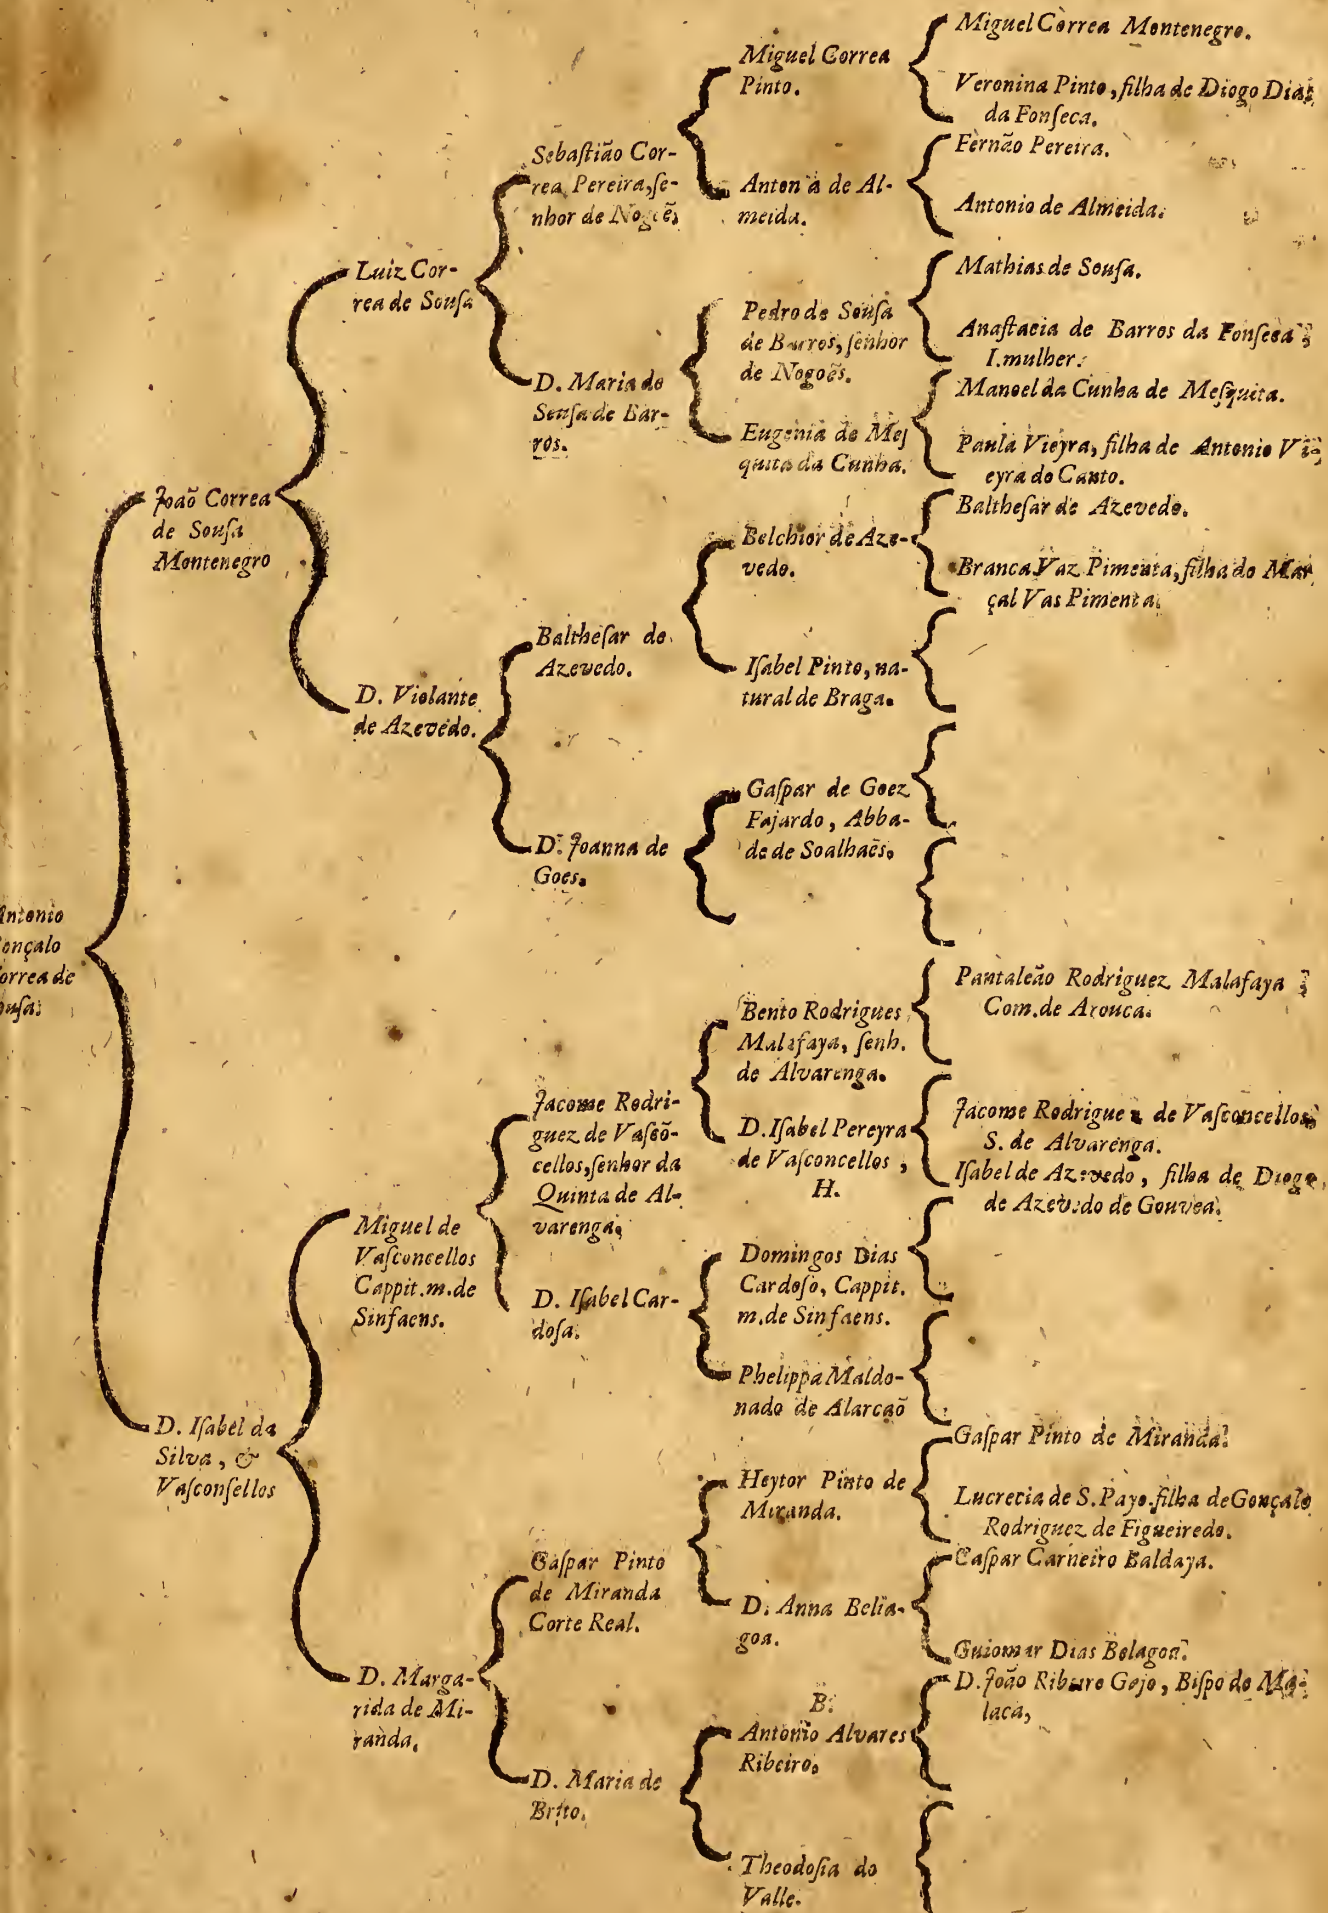 Antonio
Gonçalo
Correa de
Sousa.
Joaõ Correa
de Souſa
Montenegro
D. Iſabel da
Silva, &
Vaſconſellos
Luiz Cor-
rea de Souſa
D. Violante
de Azevedo.
Miguel de
Vaſconcellos
Cappit.m.de
Sinfaens.
D. Marga-
rida de Mi-
randa.
Sebaſtião Cor-
rea Pereira,ſe-
nhor de Nogoẽs
D. Maria de
Souſa de Bar-
ros.
Baltheſar de
Azevedo.
D. Joanna de
Goes.
Jacome Rodri-
guez de Vaſcõ-
cellos,ſenhor da
Quinta de Al-
varenga,
D. Iſabel Car-
doſa.
Gaſpar Pinto
de Miranda
Corte Real.
D. Maria de
Brito.
Miguel Correa
Pinto.
Antonia de Al-
meida.
Pedro de Souſa
de Barros, ſenhor
de Nogoẽs.
Eugenia de Meſ
quita da Cunha.
Belchior de Aze-
vedo.
Iſabel Pinto, na-
tural de Braga.
Gaſpar de Goez
Fajardo, Abba-
de de Soalhaẽs.
Bento Rodrigues
Malafaya, ſenh.
de Alvarenga.
D. Iſabel Pereyra
de Vaſconcellos,
H.
Domingos Dias
Cardoſo, Cappit.
m.de Sinfaens.
Phelippa Maldo-
nado de Alarcaõ
Heytor Pinto de
Miranda.
D. Anna Belia-
goa.
B.
Antonio Alvares
Ribeiro.
Theodoſia do
Valle.
Miguel Correa Montenegro.
Veronina Pinto, filha de Diogo Dias
da Fonſeca.
Fernão Pereira.
Antonio de Almeida.
Mathias de Souſa.
Anaſtacia de Barros da Fonſeca
I.mulher.
Manoel da Cunha de Meſquita.
Paula Vieyra, filha de Antonio Vi-
eyra do Canto.
Baltheſar de Azevedo.
Branca Vaz Pimenta, filha de Mar
çal Vas Pimenta.
Pantaleão Rodriguez Malafaya
Com.de Arouca.
Jacome Rodriguez de Vaſconcellos
S. de Alvarenga.
Iſabel de Azevedo, filha de Diogo
de Azevedo de Gouvea.
Gaſpar Pinto de Miranda.
Lucrecia de S. Payo. filha de Gonçalo
Rodriguez de Figueiredo.
Caſpar Carneiro Baldaya.
Guiomar Dias Belagoa.
D. João Ribeiro Gajo, Biſpo de Ma-
laca,